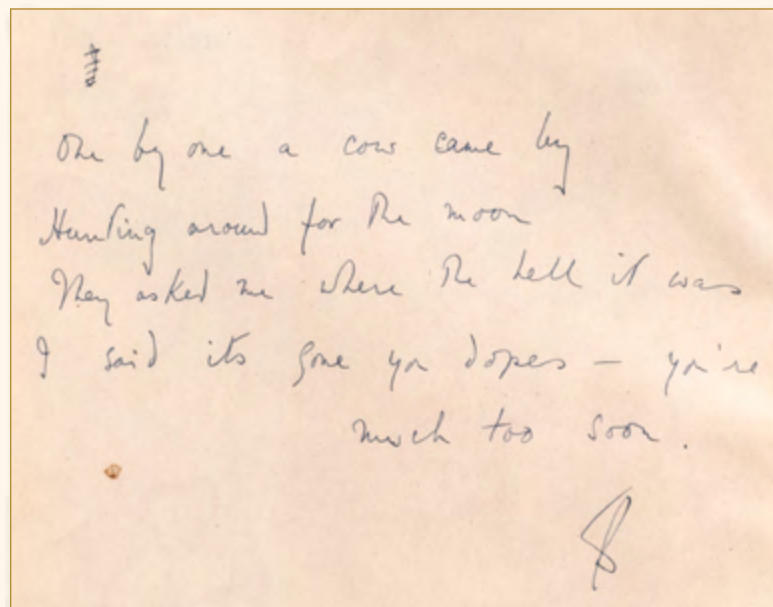 One by one a cow came by
Hunting around for the moon
They asked me where the hell it was
I said its gone you dopes — you're
much too soon.